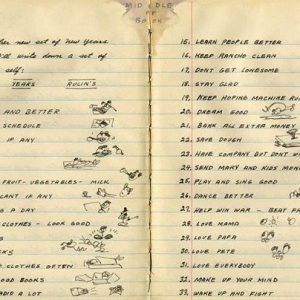 MIDDLE
OF
BOOK
her new set of New Years
ill write down a set of
self:
YEARS RULIN'S
AND BETTER
SCHEDULE
IF ANY
FRUIT - VEGETABLES - MILK
CANT IF ANY
A DAY
CLOTHES - LOOK GOOD
CLOTHES OFTEN
OOD BOOKS
ADIO A LOT
15. LEARN PEOPLE BETTER
16. KEEP RANCHO CLEAN
17. DONT GET LONESOME
18. STAY GLAD
19. KEEP HOPING MACHINE RUN
20. DREAM GOOD
21. BANK ALL EXTRA MONEY
22. SAVE DOUGH
23. HAVE COMPANY BUT DONT W
24. SEND MARY AND KIDS MONE
25. PLAY AND SING GOOD
26. DANCE BETTER
27. HELP WIN WAR - BEAT FA
28. LOVE MAMA
29. LOVE PAPA
30. LOVE PETE
31. LOVE EVERYBODY
32. MAKE UP YOUR MIND
33. WAKE UP AND FIGHT